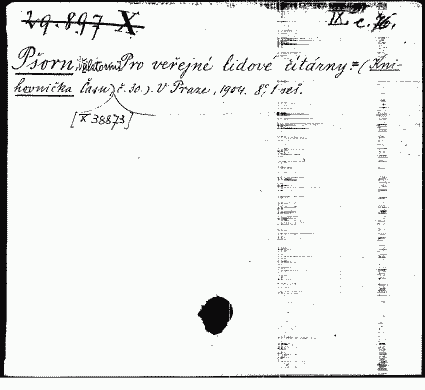 29.897 X
IX. c. 76.
Pšorn, Pro veřejné lidové čítárny = (Kni-
hovnička Času) č. 30.). V Praze, 1904. 8°. 1 seš.
[X 38873]